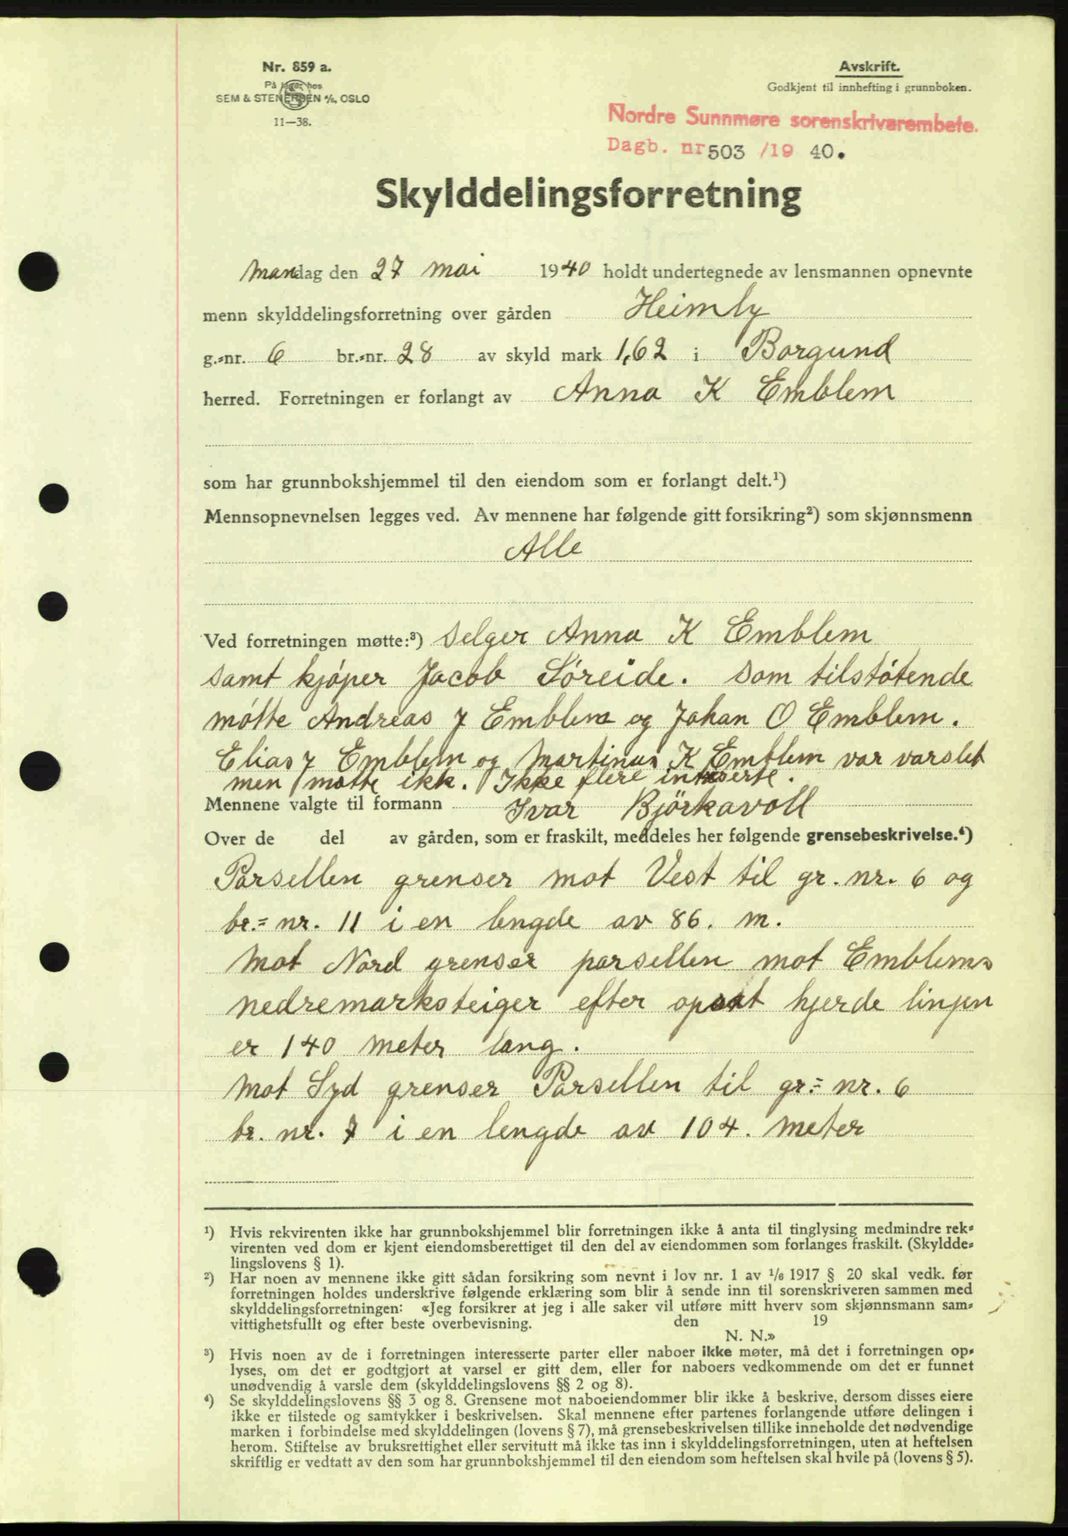 Nr. 859 a.
På lager hos
SEM & STENERSEN A/S, OSLO
11—38.
Avskrift.
Godkjent til innhefting i grunnboken.
Nordre Sunnmøre sorenskriverembete.
Dagb. nr 503 /19 40.
Skylddelingsforretning
Mandag den 27 mai 1940 holdt undertegnede av lensmannen opnevnte
menn skylddelingsforretning over gården Heimly
g.-nr. 6 br.-nr. 28 av skyld mark 1,62 i Borgund
herred. Forretningen er forlangt av Anna K Emblem
som har grunnbokshjemmel til den eiendom som er forlangt delt.¹)
Mennsopnevnelsen legges ved. Av mennene har følgende gitt forsikring²) som skjønnsmenn
Alle
Ved forretningen møtte:³) Selger Anna K Emblem
samt kjøper Jacob Søreide. Som tilstøtende
møtte Andreas J Emblem og Johan O Emblem.
Elias J Emblem og Martinus K Emblem var varslet
men møtte ikk. Ikke flere
Mennene valgte til formann Ivar Bjørkavoll
Over de del av gården, som er fraskilt, meddeles her følgende grensebeskrivelse.⁴)
Parsellen grenser mot Vest til gr. nr. 6 og
br.= nr. 11 i en lengde av 86. m.
Mot Nord grenser parsellen mot Emblems
nedremarksteiger efter opsat hjerde linjen
er 140 meter lang.
Mot Syd grenser Parsellen til gr.= nr. 6
br. nr. 7 i en lengde av 104. meter
¹) Hvis rekvirenten ikke har grunnbokshjemmel blir forretningen ikke å anta til tinglysing medmindre rek-
virenten ved dom er kjent eiendomsberettiget til den del av eiendommen som forlanges fraskilt. (Skyldde-
lingslovens § 1).
²) Har noen av mennene ikke gitt sådan forsikring som nevnt i lov nr. 1 av 1/6 1917 § 20 skal vedk. før
forretningen holdes underskrive følgende erklæring som blir å sende inn til sorenskriveren sammen med
skylddelingsforretningen: «Jeg forsikrer at jeg i alle saker vil utføre mitt hverv som skjønnsmann sam-
vittighetsfullt og efter beste overbevisning. den 19
N. N.»
³) Hvis noen av de i forretningen interesserte parter eller naboer ikke møter, må det i forretningen op-
lyses, om det er godtgjort at varsel er gitt dem, eller for naboers vedkommende om det er funnet
unødvendig å varsle dem (skylddelingslovens §§ 2 og 8).
⁴) Se skylddelingslovens §§ 3 og 8. Grensene mot naboeiendommer blir ikke å beskrive, dersom disses eiere
ikke er tilstede og samtykker i beskrivelsen. Skal mennene efter partenes forlangende utføre delingen i
marken i forbindelse med skylddelingen (lovens § 7), må grensebeskrivelsen tillike inneholde det nødvendige
herom. Stiftelse av bruksrettighet eller servitutt må ikke tas inn i skylddelingsforretningen, uten at heftelsen
skriftlig er vedtatt av den som har grunnbokshjemmel til den eiendom som heftelsen skal hvile på (lovens § 5).